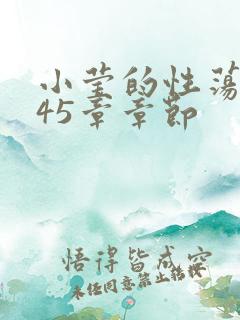 小莹的性荡
45章章节
悟得皆成空
未经同意禁止转载